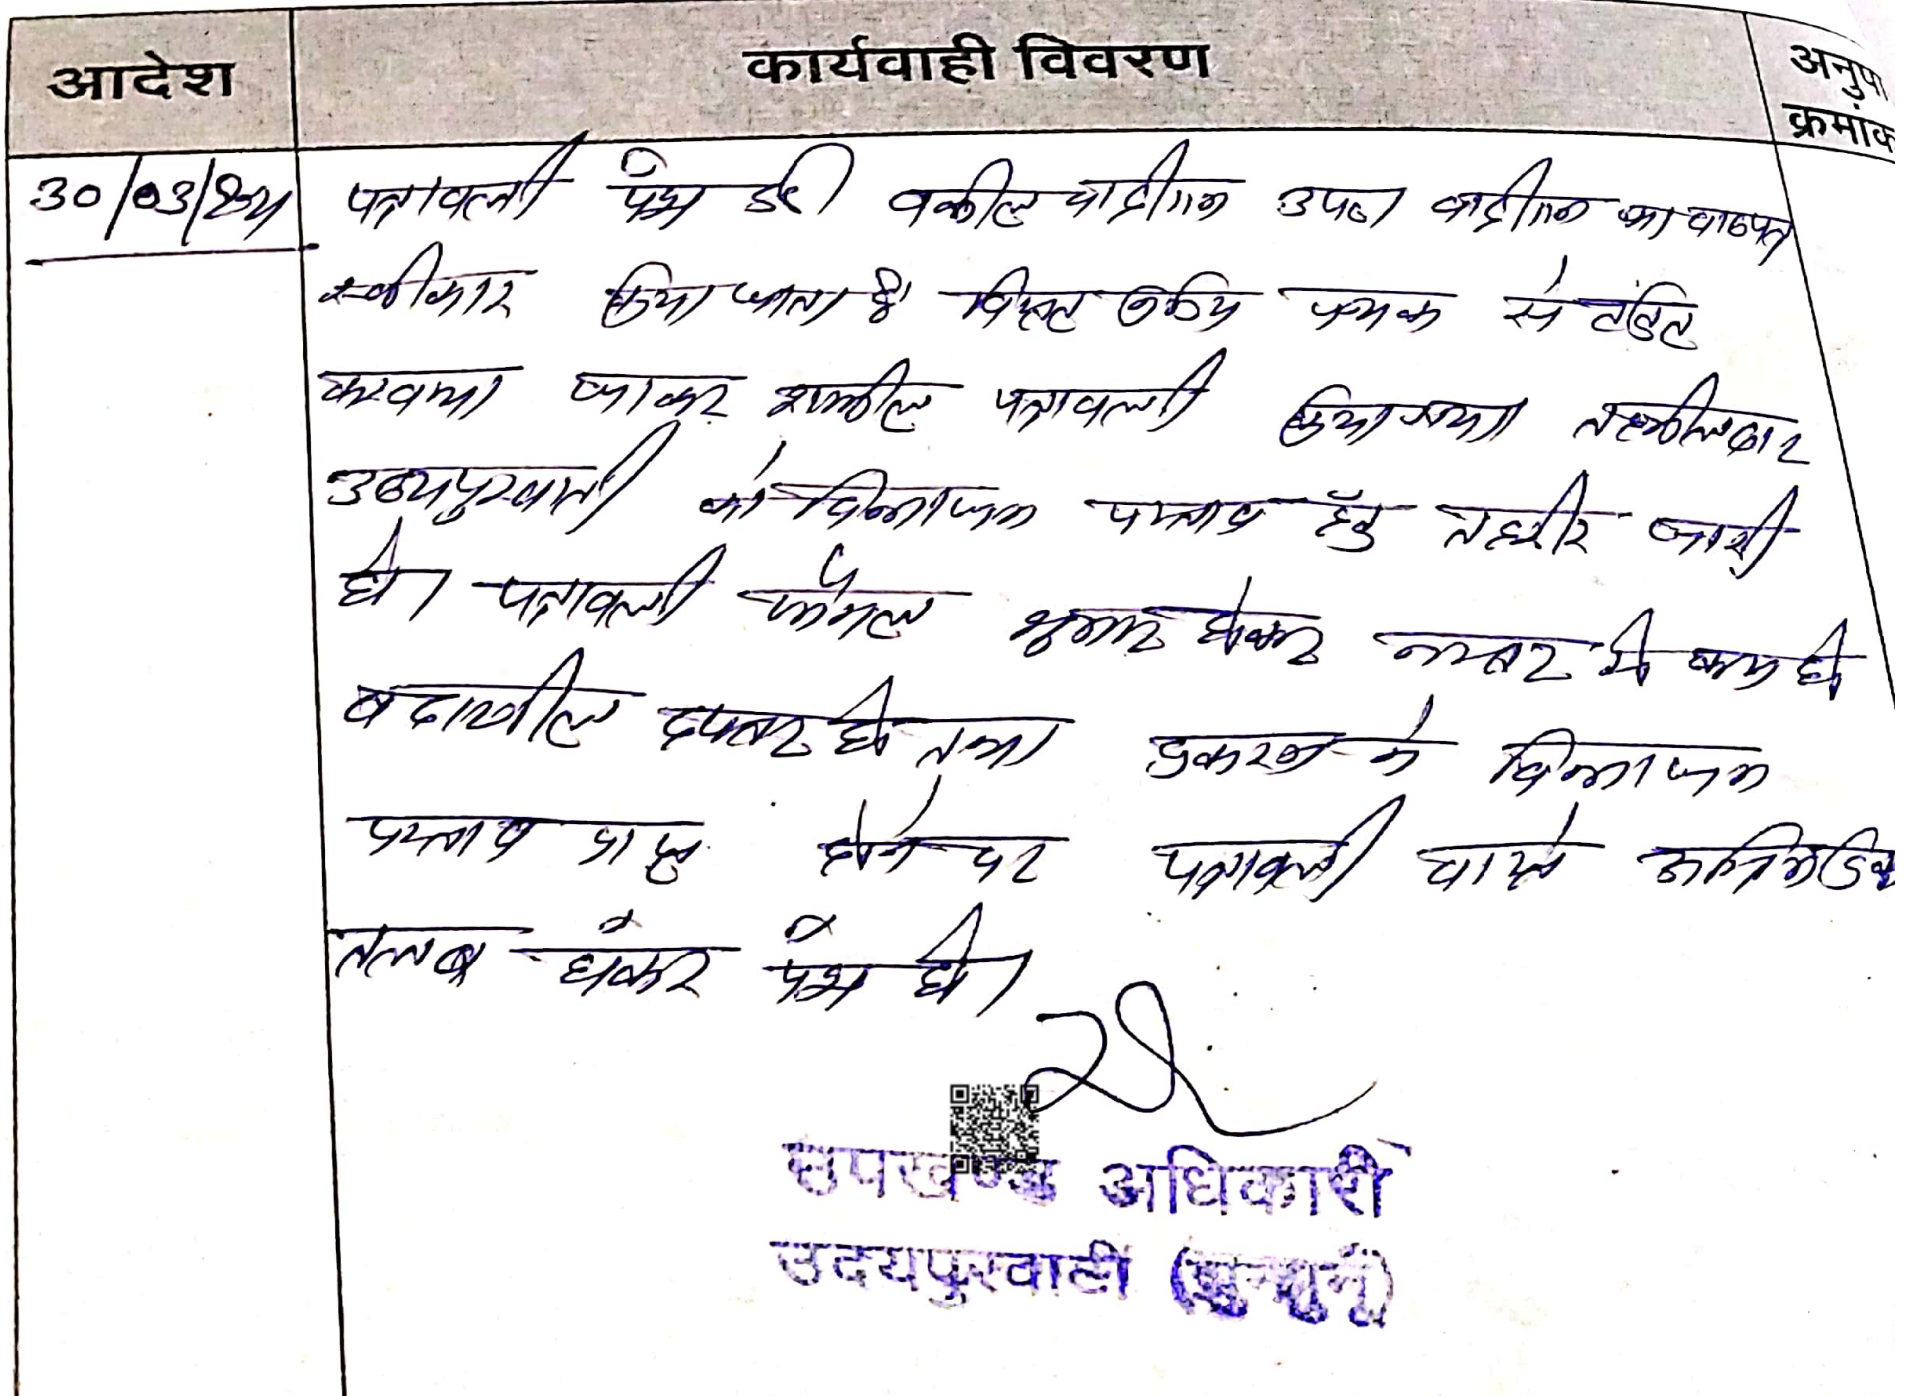 आदेश
कार्यवाही विवरण
अनुपा
क्रमांक
30/03/
पत्रावली पेश हुई। वकील वादीगण उप० वादीगण का वादपत्र
स्वीकार किया जाता है। विस्तृत निर्णय पृथक से टंकित
करवाया जाकर शामील पत्रावली किया गया। तहसीलदार
उदयपुरवाटी को विभाजन प्रस्ताव हेतु तहरीर जारी
हो। पत्रावली फैसल शुमार होकर नम्बर से कम हो
व दाखील दफ्तर हो तथा प्रकरण में विभाजन
प्रस्ताव प्राप्त होने पर पत्रावली वास्ते
तलब होकर पेश हो।
उपखण्ड अधिकारी
उदयपुरवाटी (झुन्झुनूं)